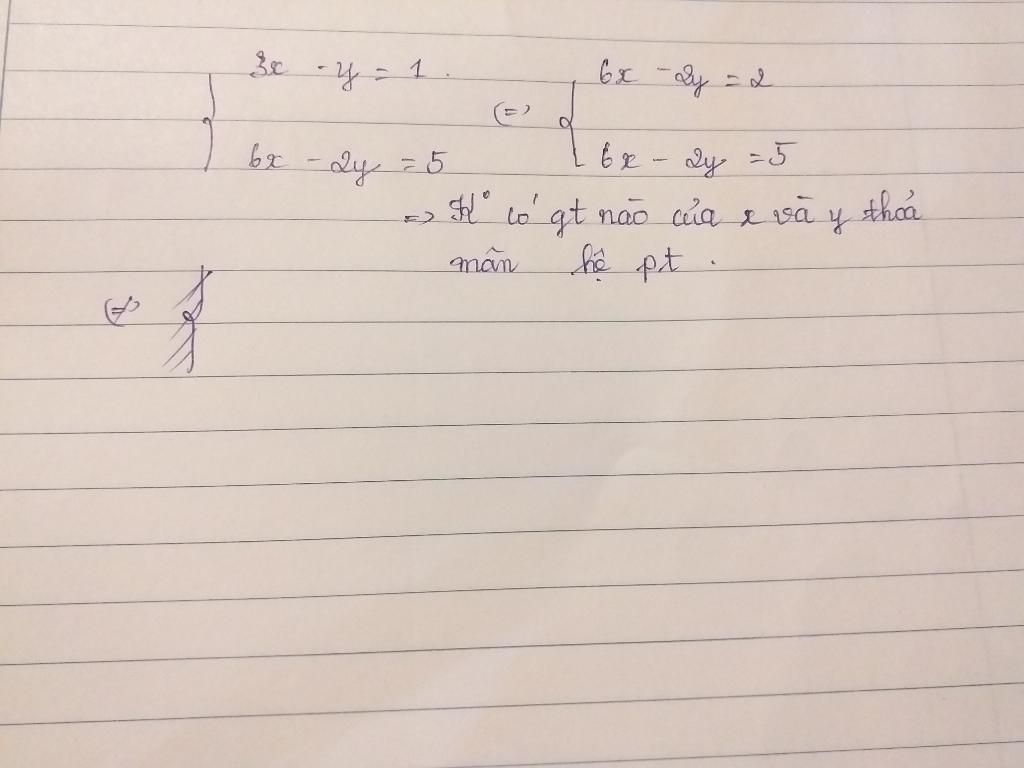 3x - y = 1 . (=) 6x - 2y = 2
6x - 2y = 5 6x - 2y = 5
=> K° có gt nào của x và y thoả
mãn hệ pt .